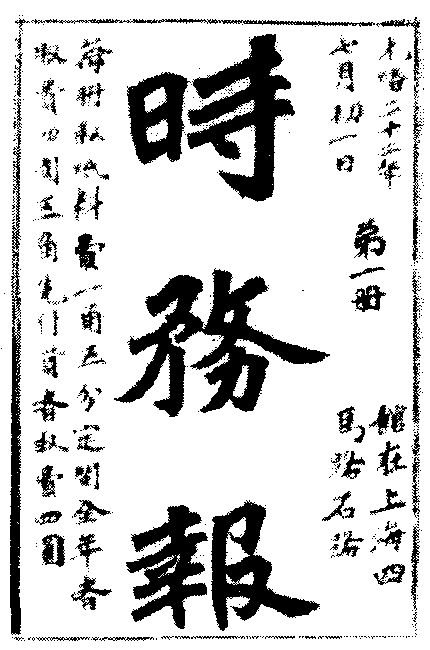 光緒二十二年
七月初一日
第一册
館在上海四
馬路石路
時務報
每册收紙料費一角五分定閱全年者
收費四圓五角先付貲者收費四圓